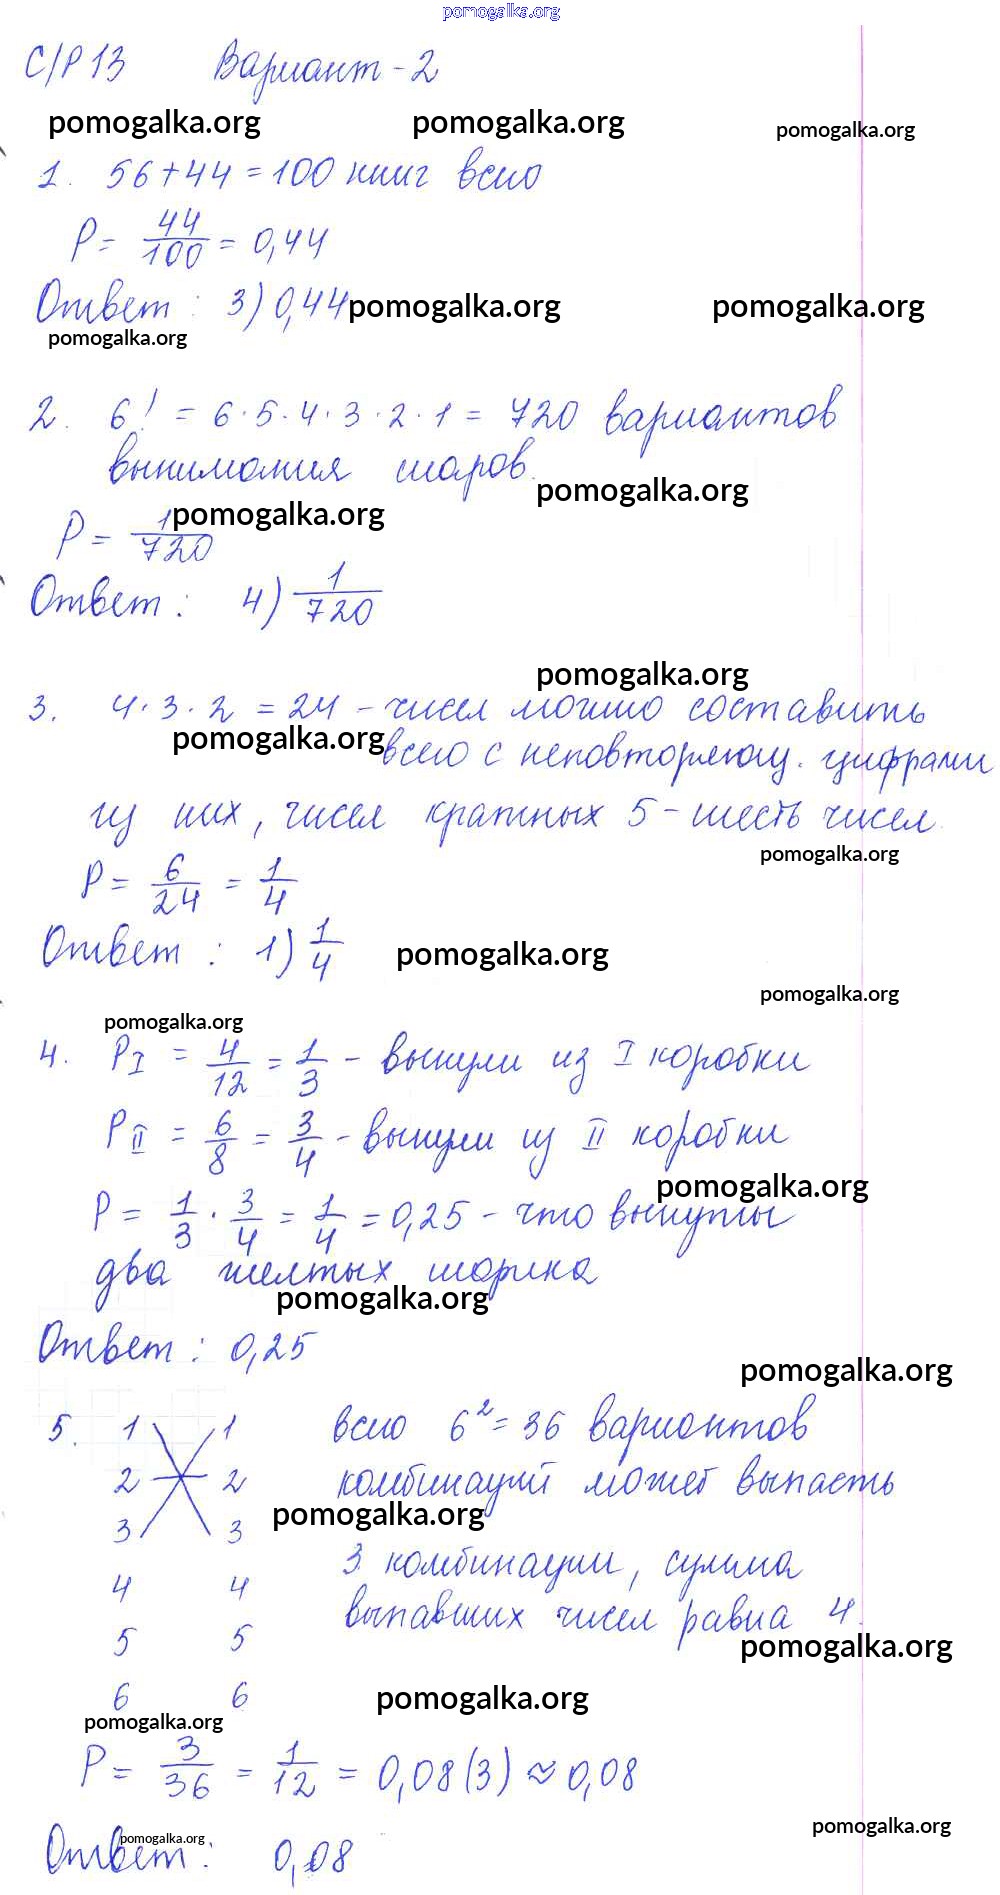 pomogalka.org
С/Р 13 Вариант-2
pomogalka.org pomogalka.org pomogalka.org
1. 56+44=100 книг всего
P = 44/100 = 0,44
Ответ: 3) 0,44 pomogalka.org pomogalka.org
pomogalka.org
2. 6! = 6·5·4·3·2·1 = 720 вариантов
вынимания шаров.
pomogalka.org
pomogalka.org
P = 1/720
Ответ: 4) 1/720
pomogalka.org
3. 4·3·2 = 24 - чисел можно составить
pomogalka.org всего с неповторяющ. цифрами
из них, чисел кратных 5 - шесть чисел.
pomogalka.org
P = 6/24 = 1/4
Ответ: 1) 1/4 pomogalka.org
pomogalka.org
pomogalka.org
4. P I = 4/12 = 1/3 - вынули из I коробки
P II = 6/8 = 3/4 - вынули из II коробки
pomogalka.org
P = 1/3 · 3/4 = 1/4 = 0,25 - что вынуты
два желтых шарика
pomogalka.org
Ответ: 0,25
pomogalka.org
5. 1 1 всего 6² = 36 вариантов
2 2 комбинаций может выпасть
pomogalka.org
3 3
3 комбинации, сумма
4 4 выпавших чисел равна 4.
5 5 pomogalka.org
6 6 pomogalka.org
pomogalka.org
P = 3/36 = 1/12 = 0,08(3) ≈ 0,08
pomogalka.org
pomogalka.org
Ответ: 0,08